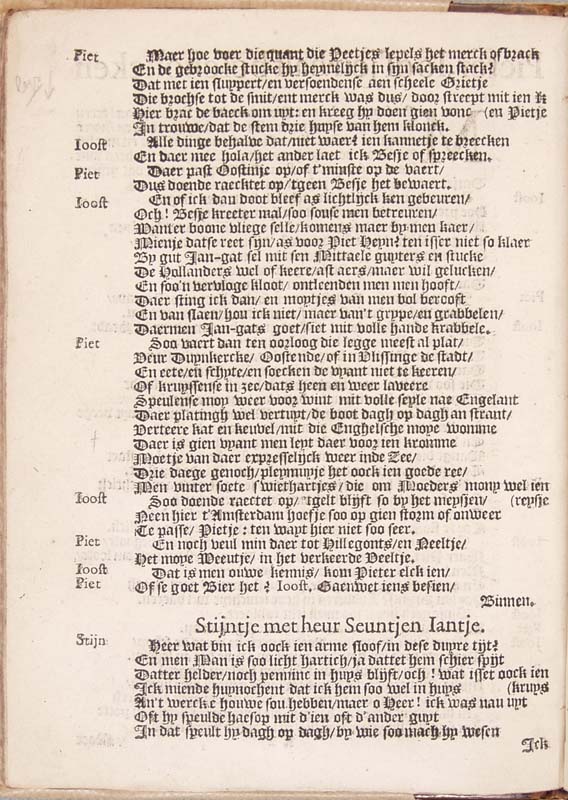 Piet Maer hoe voer die quant die Peetjes lepels het merck of brack
En de gebroocke stucke hy heymelijck in sijn sacken stack?
Dat met ien sluypert/ en versoendense aen scheele Grietje
Die brochse tot de smit/ ent merck was dus/ door streept mit ien k
Hier brac de baeck om uyt: en kreeg hy doen gien vonc (en Pietje
In trouwe/ dat de stem drie huyse van hem klonck.
Ioost Alle dinge behalve dat/ niet waer? ien kannetje te breecken
En daer mee hola/ het ander laet ick Besje of spreecken.
Piet Daer past Oostinje op/ of t'minste op de vaert/
Dus doende raecktet op/ tgeen Besje het bewaert.
Ioost En of ick dan doot bleef as lichtlijck ken gebeuren/
Och! Besje kreeter mal/ soo souse men betreuren/
Want er boone vliege selle/ komens maer by men kaer/
Mienje datse reet sijn/ as voor Piet Heyn? ten isser niet so klaer
By gut Jan-gat sel mit sen Mittaele guyters en stucke
De Hollanders wel of keere/ ast aers/ maer wil gelucken/
En soo'n vervloge kloot/ ontleenden men men hooft/
Daer sting ick dan/ en moytjes van men bol berooft
En van slaen/ hou ick niet/ maer van't grype/ en grabbelen/
Daermen Jan-gats goet/ siet mit volle hande krabbele.
Piet Soo vaert dan ten oorloog die legge meest al plat/
Veur Duynkercke/ Oostende/ of in Vlissinge de stadt/
En eete/ en schyte/ en soecken de vyant niet te keeren/
Of kruyssense in zee/ dats heen en weer laveere
Speulense moy weer voor wint mit volle seyle nae Engelant
Daer platingh wel vertuyt/ de boot dagh op dagh an straut/
Verteere kat en keuvel/ mit die Enghelsche moye womme
Daer is gien vyant men leyt daer voor ien kromme
Moetje van daer expresselijck weer inde Zee/
Drie daege genoch/ pleymuyje het oock ien goede ree/
Men vinter soete s'wiethartjes/ die om Moeders mony wel ien
Ioost Soo doende raectet op/ 'tgelt blijft so by het meysjen/ (reysje
Neen hier t'Amsterdam hoefje soo op gien storm of onweer
Te passe/ Pietje: ten wayt hier niet soo seer.
Piet En noch veul min daer tot Hillegonts/ en Neeltje/
Het moye Weeutje/ in het verkeerde Veeltje.
Ioost Dat is men ouwe kennis/ kom Pieter elck ien/
Piet Of se goet Bier het? Ioost. Gaenwet iens besien/
Binnen.
Stijntje met heur Seuntjen Iantje.
Stijn Heer wat bin ick oock ien arme sloof/ in dese duyre tijt?
En men Man is soo licht hartich/ ja dattet hem schier spijt
Datter helder/ noch penninc in huys blijft/ och! wat isset oock ien
Ick miende huynochent dat ick hem soo wel in huys (kruys
An't wercke houwe sou hebben/ maer o Heer! ick was nau uyt
Oft hy speulde haesop mit d'ien oft d'ander guyt
In dat speult hy dagh op dagh/ by wie soo mach hy wesen
Ick